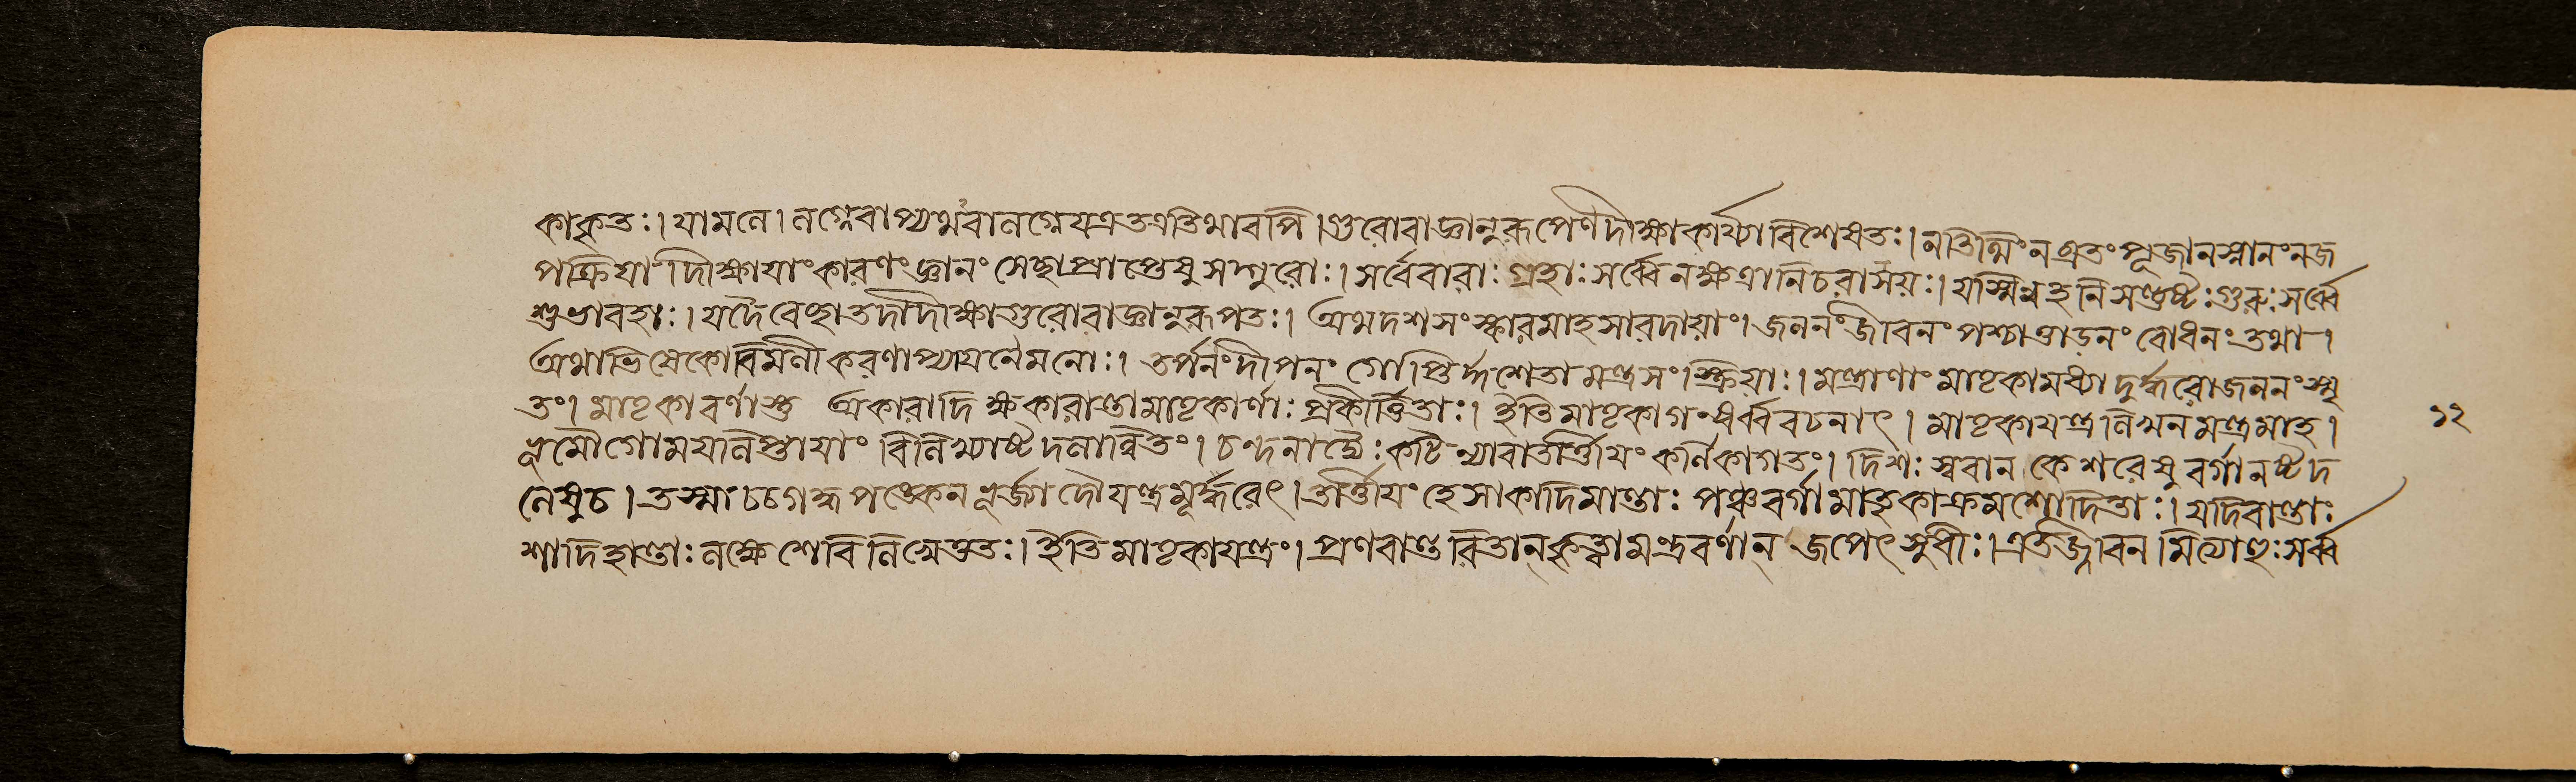 কাকৃতঃ। যামনে। নগ্নেবাপ্যথবানগ্নেযত্রতত্রতিথাবপি। গুরোরাজ্ঞানুরূপেণদীক্ষাকার্য্যাবিশেষতঃ। নতিথির্নব্রতংপূজানস্নানংনজ
পক্রিযা দীক্ষাযাংকারণং জ্ঞানং সেচ্ছাপ্রাপ্তেষুসদ্গুরোঃ। সর্বেবারাঃ গ্রহাঃ সর্ব্বেনক্ষত্রানিচরাসয়ঃ। যস্মিন্নহনিসন্তুষ্টঃগুরুঃসর্ব্বে
শুভাবহাঃ। যদৈবেচ্ছাতদাদীক্ষাগুরোরাজ্ঞানুরূপতঃ। অথদশসংস্কারমাহসারদায়াং। জননংজীবনং পশ্চাত্তাড়নং বোধনং তথা।
অথাভিষেকোবিমলীকরণাপ্যাযনেমনোঃ। তর্পনংদীপনং গোপ্তির্দ্দশেতামন্ত্রসংস্ক্রিযাঃ। মন্ত্রাণাং মাতৃকামধ্যাদুর্দ্ধারোজননংস্মৃ
তং। মাতৃকাবর্ণাস্তু অকারাদি ক্ষকারান্তামাতৃকার্ণাঃ প্রকীর্ত্তিতাঃ। ইতিমাতৃকাগন্ধর্ব্ববচনাৎ। মাতৃকাযন্ত্রলিখনমন্ত্রমাহ। ১২
ভূমৌগোময়লিপ্তাযাং বিলিখ্যাষ্টদলান্বিতং। চন্দনাদ্যৈঃ কর্ণিকাগতং। দিশঃ স্বরান কেশরেষুবর্গানষ্টদ
লেষুচ। পঞ্চবর্গামাতৃকাক্রমশোদিতাঃ। যদিবান্তাঃ
শাদিহান্তাঃ ইতিমাতৃকাযন্ত্রং। প্রণবান্তরিতান্‌কৃত্বামন্ত্রবর্ণান্ জপেৎসুধীঃ। এতজ্জীবনমিত্যাহুঃসর্ব্ব